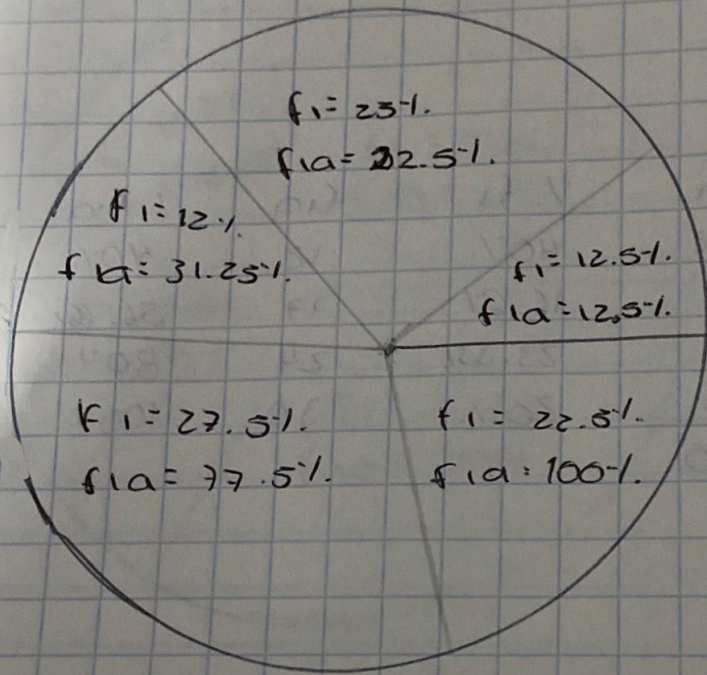 f1= 25%.
f1a= 22.5%.
f1= 12%.
f1a= 31.25%.
f1= 12.5%.
f1a=12,5%.
f1= 27.5%.
f1a= 77.5%.
f1= 22.5%.
f1a: 100%.